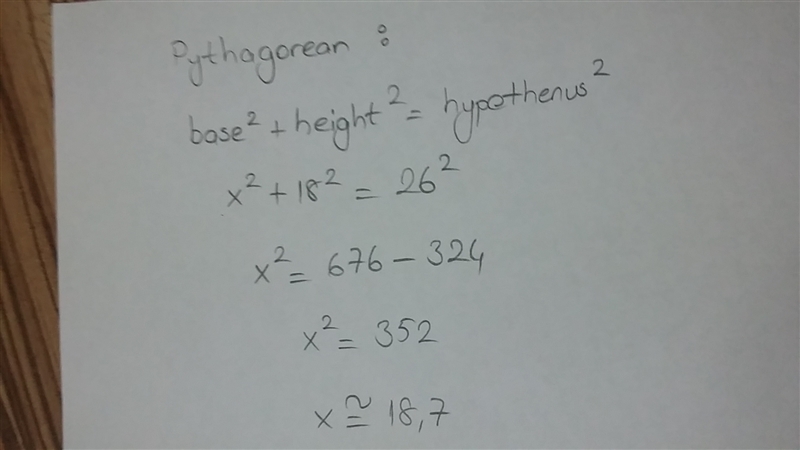 Pythagorean :
base² + height² = hypothenus²
x² + 18² = 26²
x² = 676 - 324
x² = 352
x ≅ 18,7